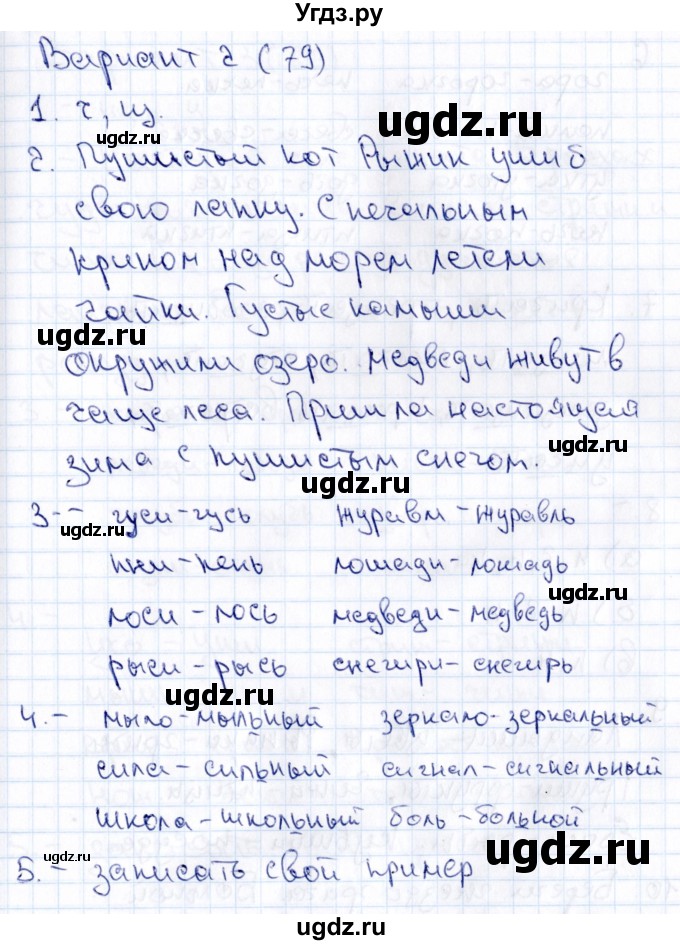 Угдз.ру
Вариант 2 (79)
1. ч, щ.
ugdz.ru ugdz.ru
2. Пушистый кот Рыжик ушиб
свою лапку. С печальным
криком над морем летели
чайки. Густые камыши
ugdz.ru
окружили озеро. Медведи живут в
чаще леса. Пришла настоящая
ugdz.ru
зима с пушистым снегом.
ugdz.ru
3.- гуси-гусь журавли-журавль
ugdz.ru
пни-пень лошади-лошадь
ugdz.ru
лоси-лось медведи-медведь
рыси-рысь снегири-снегирь
ugdz.ru
4.- мыло-мыльный зеркало-зеркальный
ugdz.ru
сила-сильный сигнал-сигнальный
школа-школьный боль-больной
ugdz.ru
5.- записать свой пример
ugdz.ru